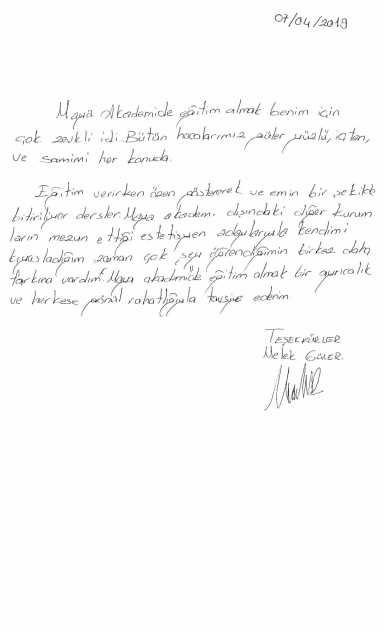 07/04/2019
Maya Akademide eğitim almak benim için
çok zevkli idi. Bütün hocalarımız güler yüzlü, içten,
ve samimi her konuda.
Eğitim verirken özen göstererek ve emin bir şekilde
bitiriliyor dersler. Maya akademi dışındaki diğer kurum
ların mezun ettiği estetisyen adaylarıyla kendimi
kıyasladığım zaman çok şey öğrendiğimin birkez daha
farkına vardım. Maya akademide eğitim almak bir ayrıcalık
ve herkese gönül rahatlığıyla tavsiye ederim
TEŞEKKÜRLER
Melek GÜLER